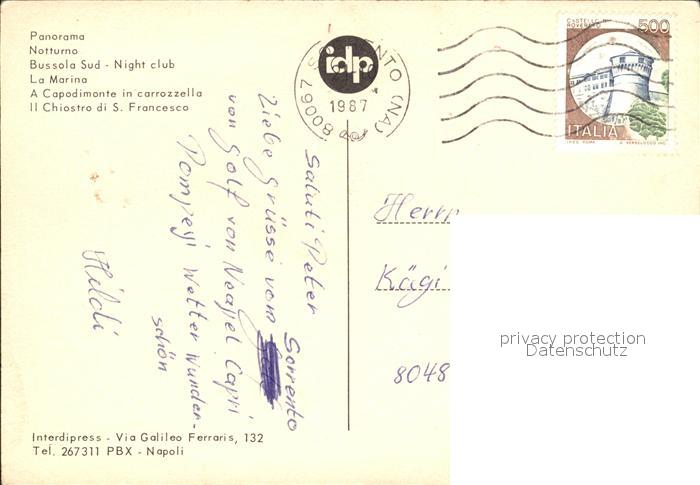 Panorama
Notturno
Bussola Sud - Night club
La Marina
A Capodimonte in carrozzella
Il Chiostro di S. Francesco
idp
SORRENTO (NA)
1987
80067
CASTELLO DI
ROVERETO
500
ITALIA
I.P.Z.S. ROMA
Saluti Peter
Liebe Grüsse vom Sorrento
von Golf von Neapel Capri
Pompeji Wetter Wunder-
schön
Hildi
Herrn
Kägi
8048
privacy protection
Datenschutz
Interdipress - Via Galileo Ferraris, 132
Tel. 267311 PBX - Napoli